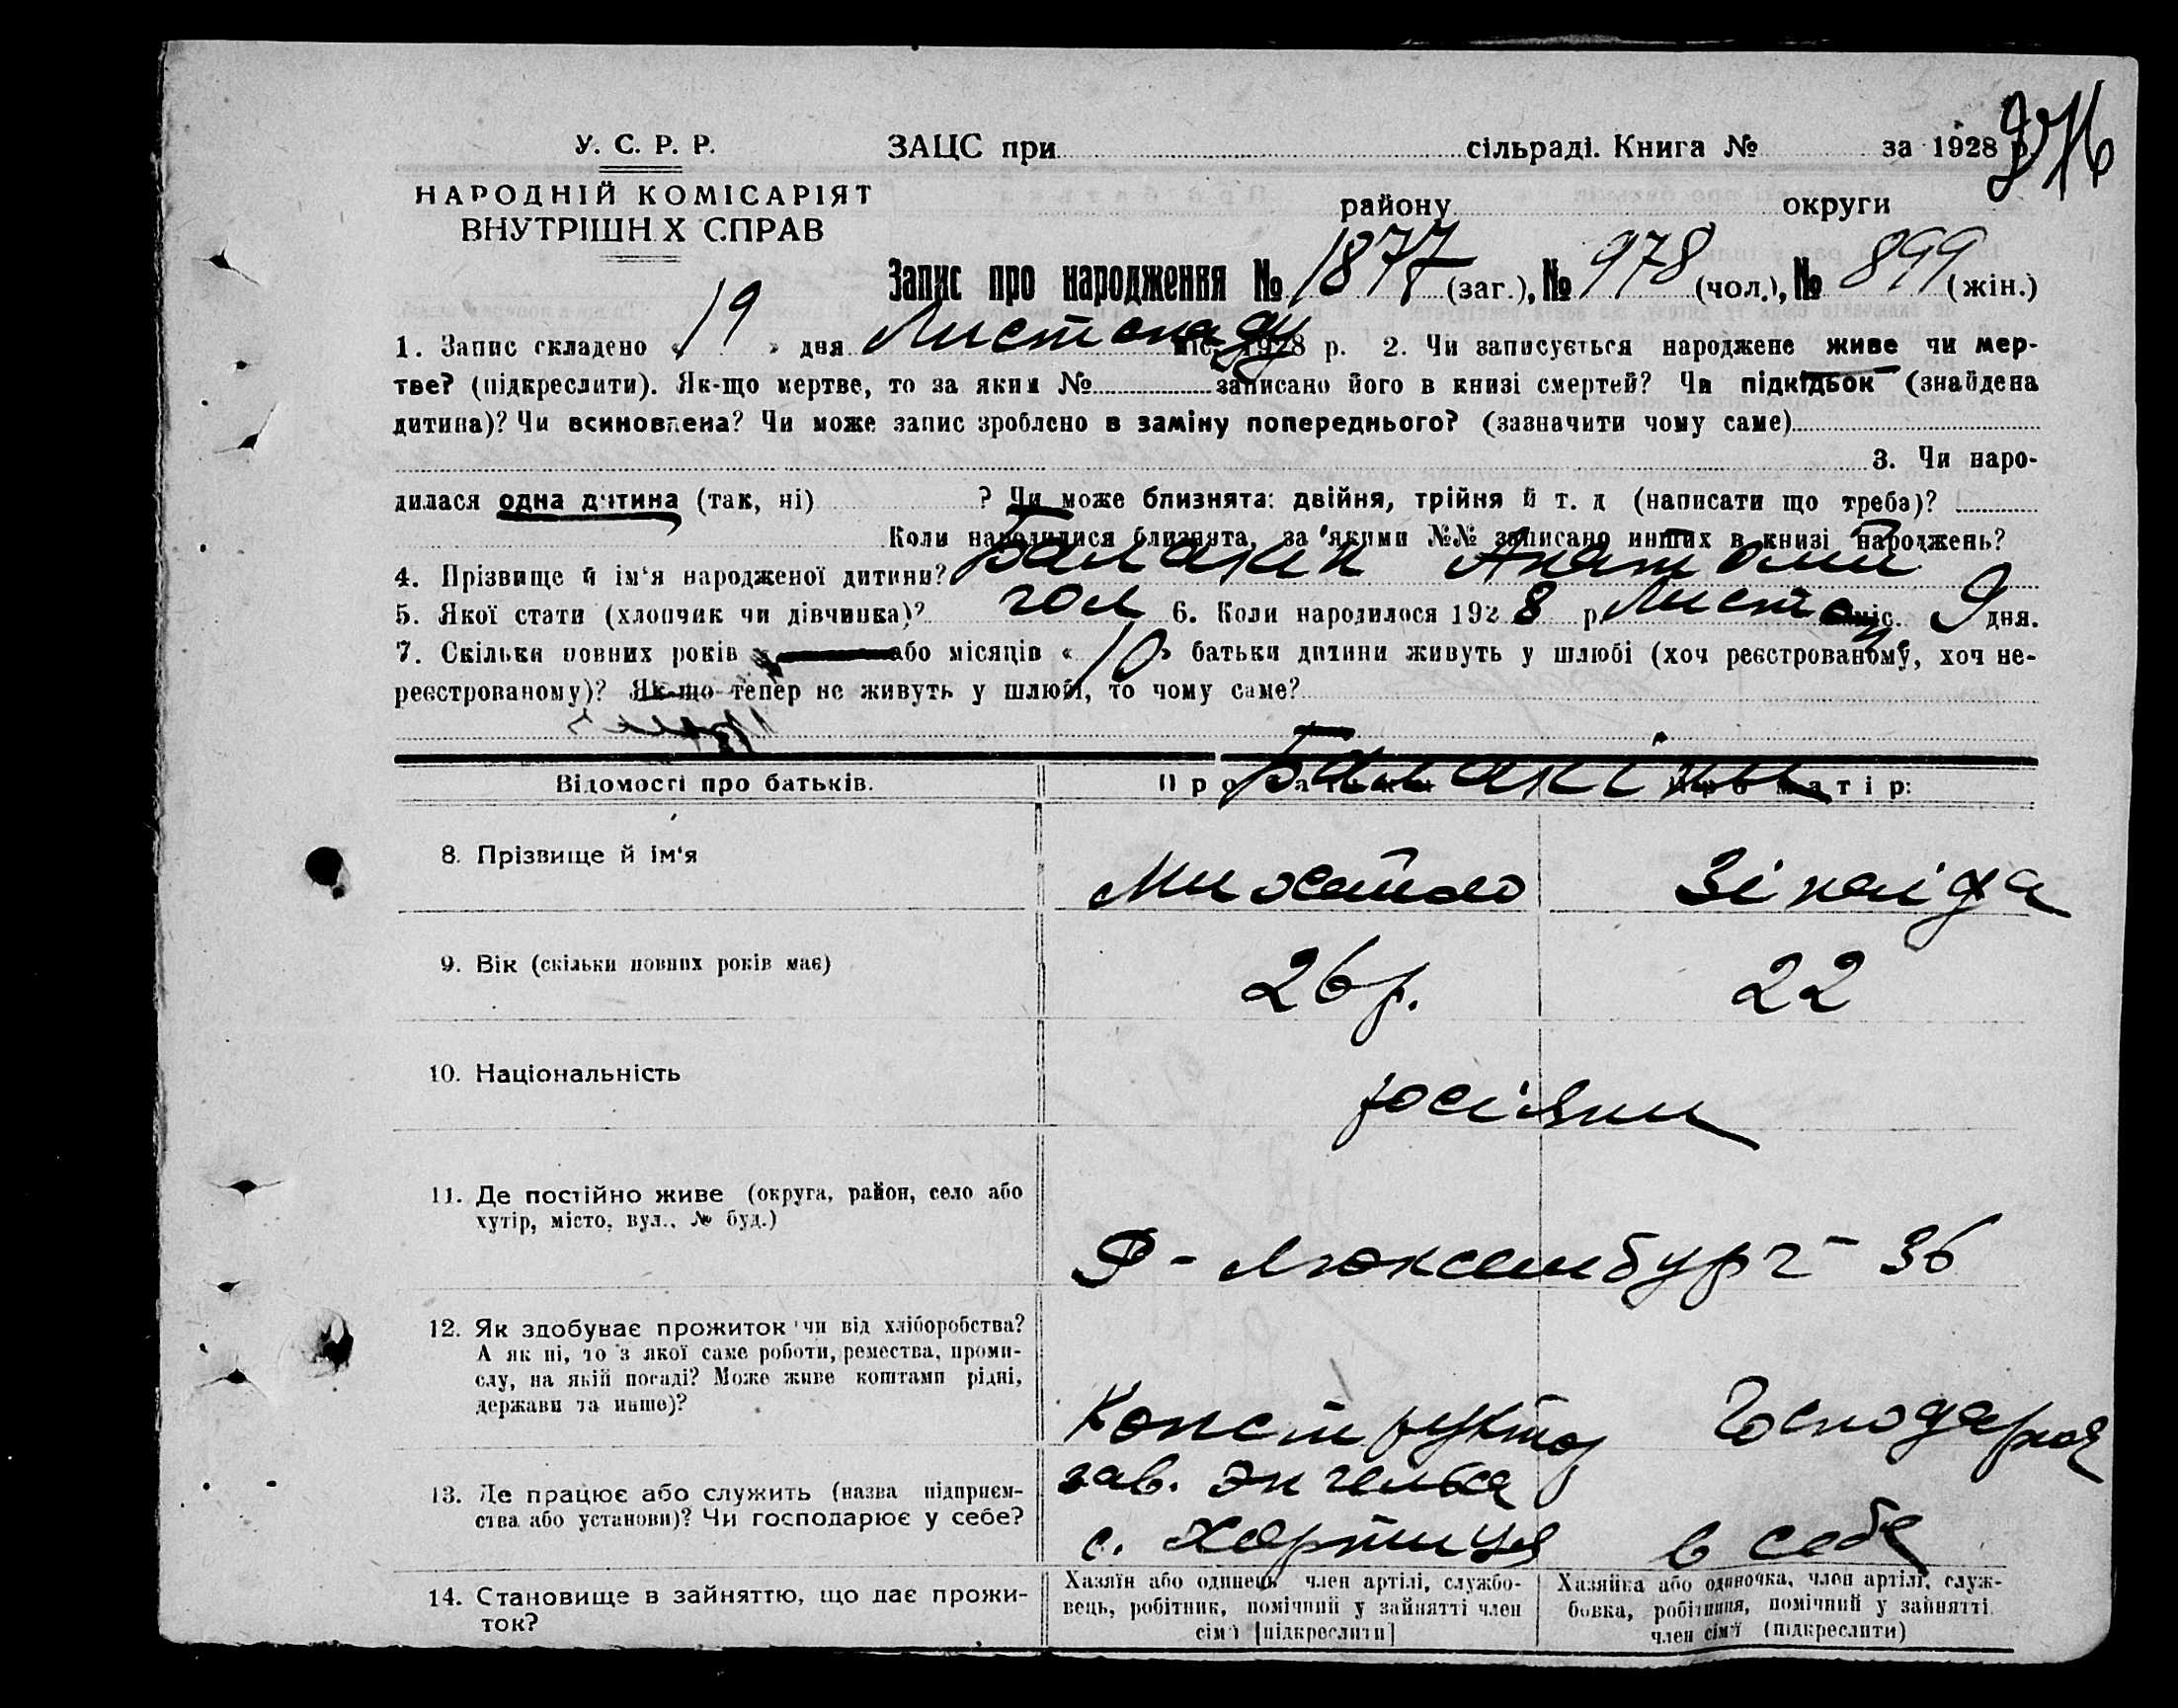 У. С. Р. Р. ЗАЦС при сільраді. Книга № за 1928 р.
НАРОДНІЙ КОМІСАРІЯТ
району округи
ВНУТРІШН Х СПРАВ
Запис про народження № 1877 (заг.), № 978 (чол.), № 899 (жін.)
1. Запис складено « 19 » дня Листопаду міс. 1928 р. 2. Чи записується народжене живе чи мер-
тве? (підкреслити). Як-що мертве, то за яким № записано його в книзі смертей? Чи підкідьок (знайдена
дитина)? Чи всиновлена? Чи може запис зроблено в заміну попереднього? (зазначити чому саме)
3. Чи наро-
дилася одна дитина (так, ні) ? Чи може близнята: двійня, трійня й т. д (написати що треба)?
Коли народилися близнята, за якими №№ записано инших в книзі народжень?
4. Прізвище й ім‘я народженої дитини? Балакин Анатолий
5. Якої стати (хлопчик чи дівчинка)? чол 6. Коли народилося 192 8 р. Листоп міс. 9 дня.
7. Скільки повних років або місяців « 10 » батьки дитини живуть у шлюбі (хоч реєстрованому, хоч не-
реєстрованому)? Як-що тепер не живуть у шлюбі, то чому саме?
Балакіны
Відомості про батьків. Про батька: Про матір:
8. Прізвище й ім‘я Михайло Зінаіда
9. Вік (скільки повних років має) 26 р. 22
10. Національність росіяни
11. Де постійно живе (округа, район, село або
хутір, місто, вул., № буд.)
Р - Люксембург - 36
12. Як здобуває прожиток чи від хліборобства?
А як ні, то з якої саме роботи, ремества, проми-
слу, на якій посаді? Може живе коштами рідні,
держави та инше)?
Конструктор Господарка
13. Де працює або служить (назва підприєм-
ства або установи)? Чи господарює у себе?
зав. Энгельса
с. Хортиця в себе
14. Становище в зайняттю, що дає прожи-
ток?
Хазяїн або одинець, член артілі, службо-
вець, робітник, помічний у зайнятті член
сім‘ї [підкреслити]
Хазяйка або одиночка, член артілі, служ-
бовка, робітниця, помічний у зайнятті
член сім‘ї (підкреслити)